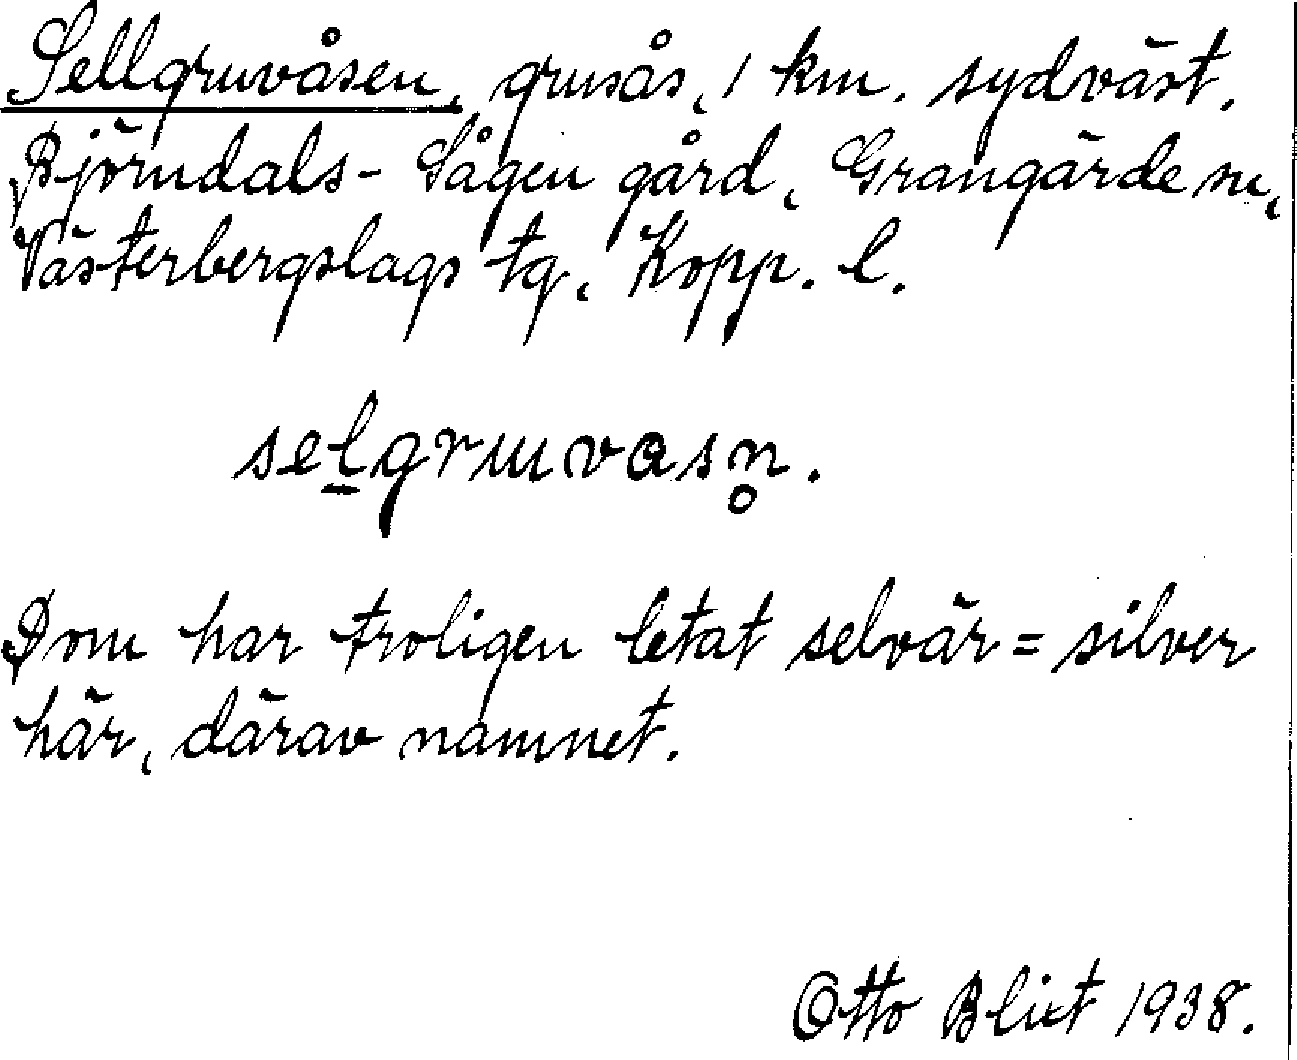 Sellgruvåsen, grusås, 1 km. sydväst.
Björndals-Sågen gård, Grangärde sn,
Västerbergslags tg, Kopp. l.
selgruvasn̥.
Dom har troligen letat selvär = silver
här, därav namnet.
Otto Blixt 1938.